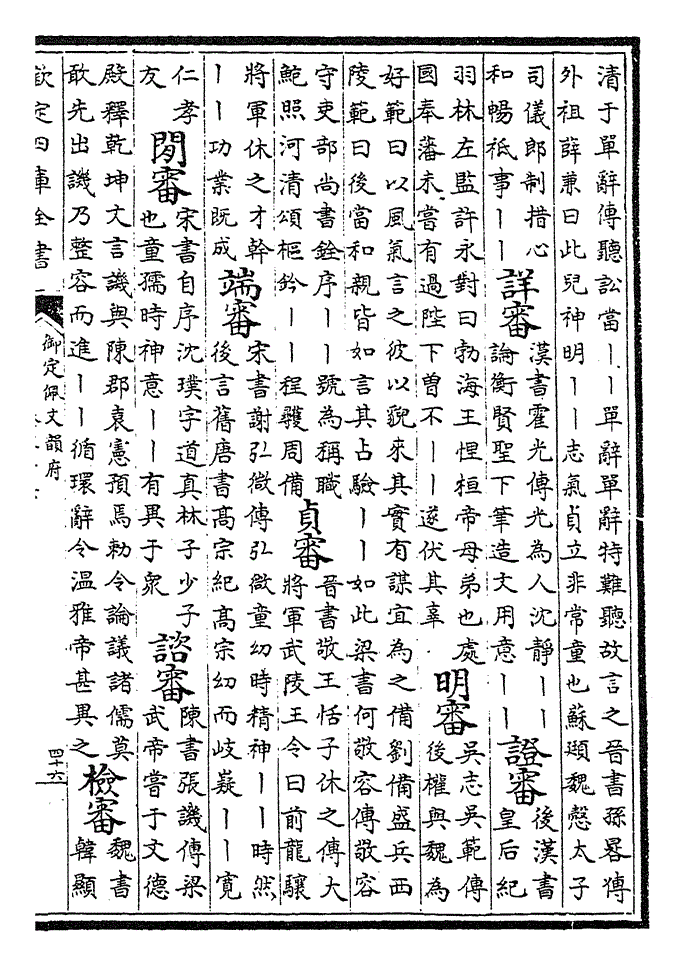 清于單辭傳聽訟當丨丨單辭單辭特難聽故言之晉書孫晷傳
外祖薛兼曰此兒神明丨丨志氣貞立非常童也蘇頲魏慤太子
司儀郎制措心
和暢祗事丨丨
詳審
漢書霍光傳光為人沈靜丨丨
論衡賢聖下筆造文用意丨丨
證審
後漢書
皇后紀
羽林左監許永對曰勃海王悝桓帝母弟也處
國奉藩未嘗有過陛下曾不丨丨遂伏其辜
明審
吳志吳範傳
後權與魏為
好範曰以風氣言之彼以貌來其實有謀宜為之備劉備盛兵西
陵範曰後當和親皆如言其占驗丨丨如此梁書何敬容傳敬容
守吏部尚書銓序丨丨號為稱職
鮑照河清頌樞鈐丨丨程驥周備
貞審
晉書敬王恬子休之傳大
將軍武陵王令曰前龍驤
將軍休之才幹
丨丨功業既成
端審
宋書謝弘微傳弘微童幼時精神丨丨時然
後言舊唐書高宗紀高宗幼而岐嶷丨丨寬
仁孝
友
閒審
宋書自序沈璞字道真林子少子
也童孺時神意丨丨有異于衆
諮審
陳書張譏傳梁
武帝嘗于文德
殿釋乾坤文言譏與陳郡袁憲預焉勅令論議諸儒莫
敢先出譏乃整容而進丨丨循環辭令溫雅帝甚異之
檢審
魏書
韓顯
欽定四庫全書
御定佩文韻府
四十六